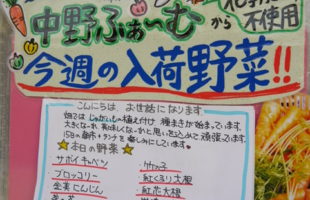 から
不使用
中野ふぁーむ
今週の入荷野菜!!
こんにちは お世話になります
畑では じゃがいもの植え付け 種まきが始まっています。
大きくなーれ 美味しくなーれと思いを込めて頑張っています。
15日の朝市+ランチを楽しみにしています♥
★本日の野菜★
サボイキャベツ
ブロッコリー
金美にんじん
竹の子
紅くるり大根
紅芯大根